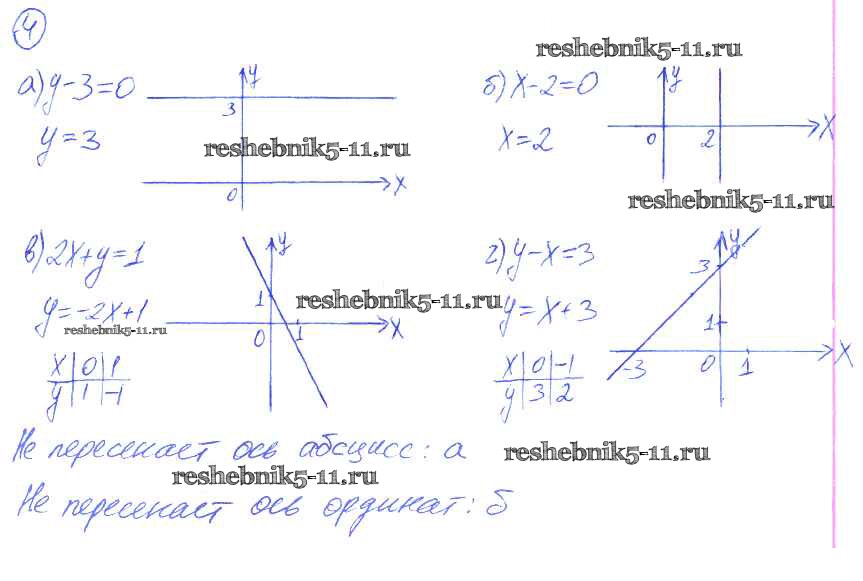 4
reshebnik5-11.ru
а) y-3=0
y=3
y
3
0
x
reshebnik5-11.ru
б) x-2=0
x=2
y
0
2
x
reshebnik5-11.ru
в) 2x+y=1
y=-2x+1
reshebnik5-11.ru
x | 0 | 1
y | 1 | -1
y
1
0
1
x
reshebnik5-11.ru
г) y-x=3
y=x+3
x | 0 | -1
y | 3 | 2
y
3
1
-3
0
1
x
Не пересекает ось абсцисс: а
reshebnik5-11.ru
reshebnik5-11.ru
Не пересекает ось ординат: б